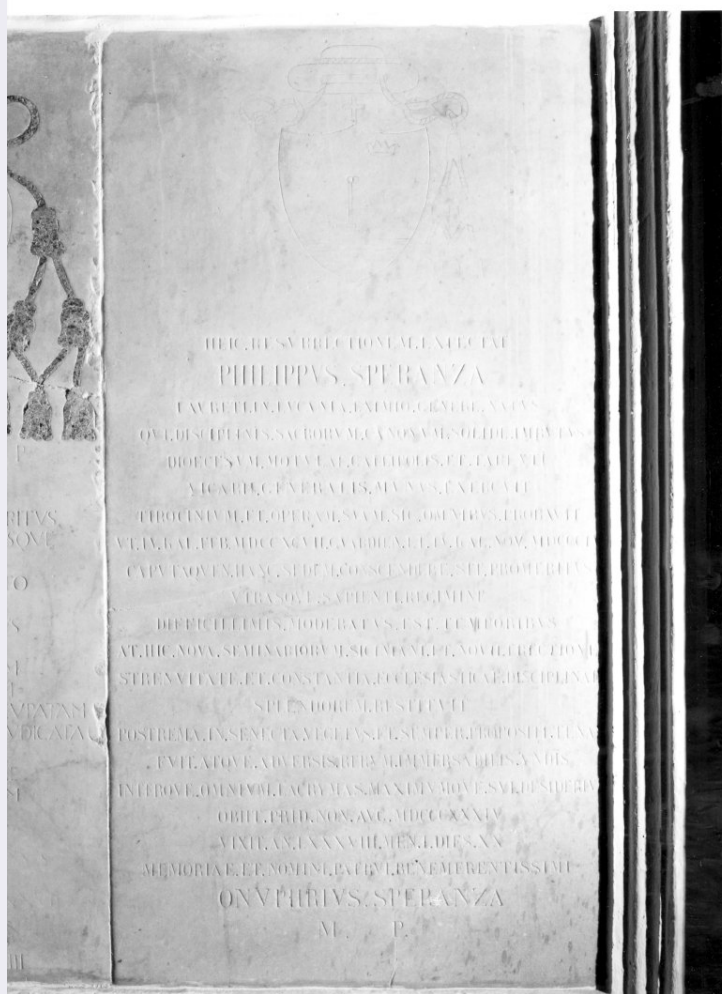 P.
PITVS
SQVE
TO
S
VPATAM
VDICATA
III
HEIC.RESVRRECTIONEM.EXPECTAT
PHILIPPVS.SPERANZA
LAVRETI.IN.LVCANIA.EXIMIO.GENERE.NATVS
QVI.DISCIPLINIS.SACRORVM.CANONVM.SOLIDE.IMBVTVS
DIOECESVM.MOTVLAE.CALLIPOLIS.ET
VICARII.GENERALIS.MVNVS.EXPLEVIT
TIROCINIVM.ET.OPERAM.SVAM.SIC.OMNIBVS.PROBAVIT
VT.IV.KAL.FEB.MDCCXCVII.ET.IV.KAL.NOV.
CAPVTAQVEN.HANC.SEDEM.CONSCENDERE.SIT.PROMERITVS
VTRASQVE.SAPIENTI.REGIMINE
DIFFICILLIMIS.MODERATVS.EST.TEMPORIBVS
AT.HIC.NOVA.SEMINARIORVM.SICINIANI.ET.NOVII.ERECTIONE
STRENVITATE.ET.CONSTANTIA.ECCLESIASTICAE.DISCIPLINAE
SPLENDOREM.RESTITVIT
POSTREMA.IN.SENECTA.VEGETVS.ET.SEMPER.PROPOSITI.TENAX
FVIT.ATQVE.ADVERSIS.RERVM.IMMERSABILIS.VNDIS
INTERQVE.OMNIVM.LACRYMAS.MAXIMVMQVE.SVI.DESIDERIVM
OBIIT.PRID.NON.AVG.MDCCCXXXIV
VIXIT.AN.LXXXVIII.MEN.I.DIES.XX
MEMORIAE.ET.NOMINI.PATRVI.BENEMERENTISSIMI
ONVPHRIVS.SPERANZA
M. P.